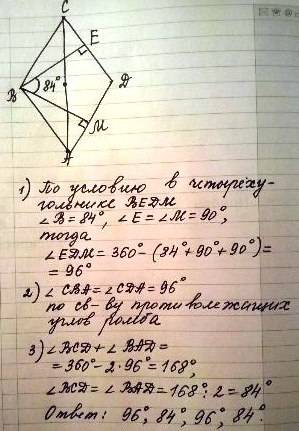 C
E
B
84°
D
M
A
1) По условию в четырёху-
гольнике BEDM
∠B = 84°, ∠E = ∠M = 90°,
тогда
∠EDM = 360° - (84° + 90° + 90°) =
= 96°
2) ∠CBA = ∠CDA = 96°
по св-ву противолежащих
углов ромба
3) ∠BCD + ∠BAD =
= 360° - 2·96° = 168°,
∠BCD = ∠BAD = 168° : 2 = 84°
Ответ: 96°, 84°, 96°, 84°.